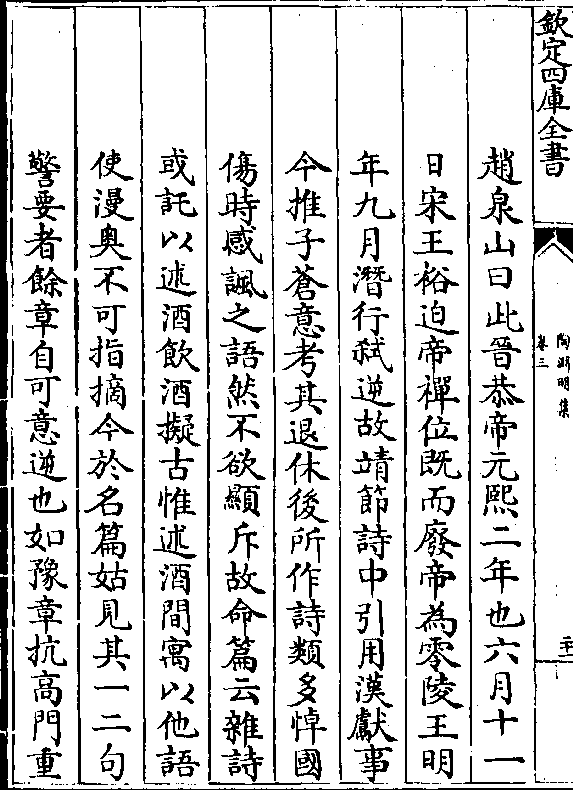 欽定四庫全書
陶淵明集
卷三
二十
趙泉山曰此晉恭帝元熙二年也六月十一
日宋王裕迫帝禪位既而廢帝為零陵王明
年九月潛行弑逆故靖節詩中引用漢獻事
今推子蒼意考其退休後所作詩類多悼國
傷時感諷之語然不欲顯斥故命篇云雜詩
或託以述酒飲酒擬古惟述酒間寓以他語
使漫奧不可指摘今於名篇姑見其一二句
警要者餘章自可意逆也如豫章抗高門重